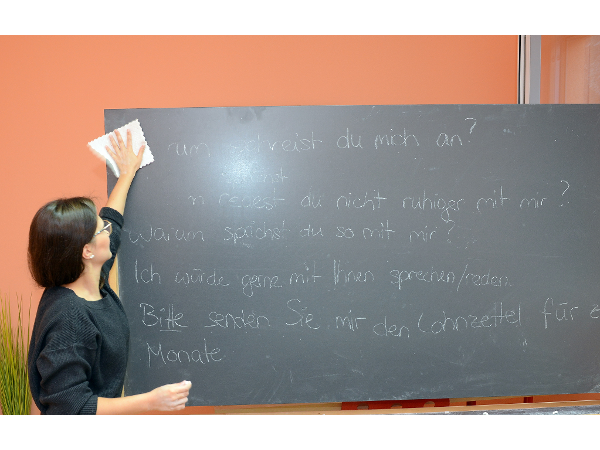 um schreist du mich an?
chst
m redest du nicht ruhiger mit mir?
Warum spichst du so mit mir?
Ich würde gerne mit Ihnen sprechen/reden.
Bitte senden Sie mir den Lohnzettel für z
Monate